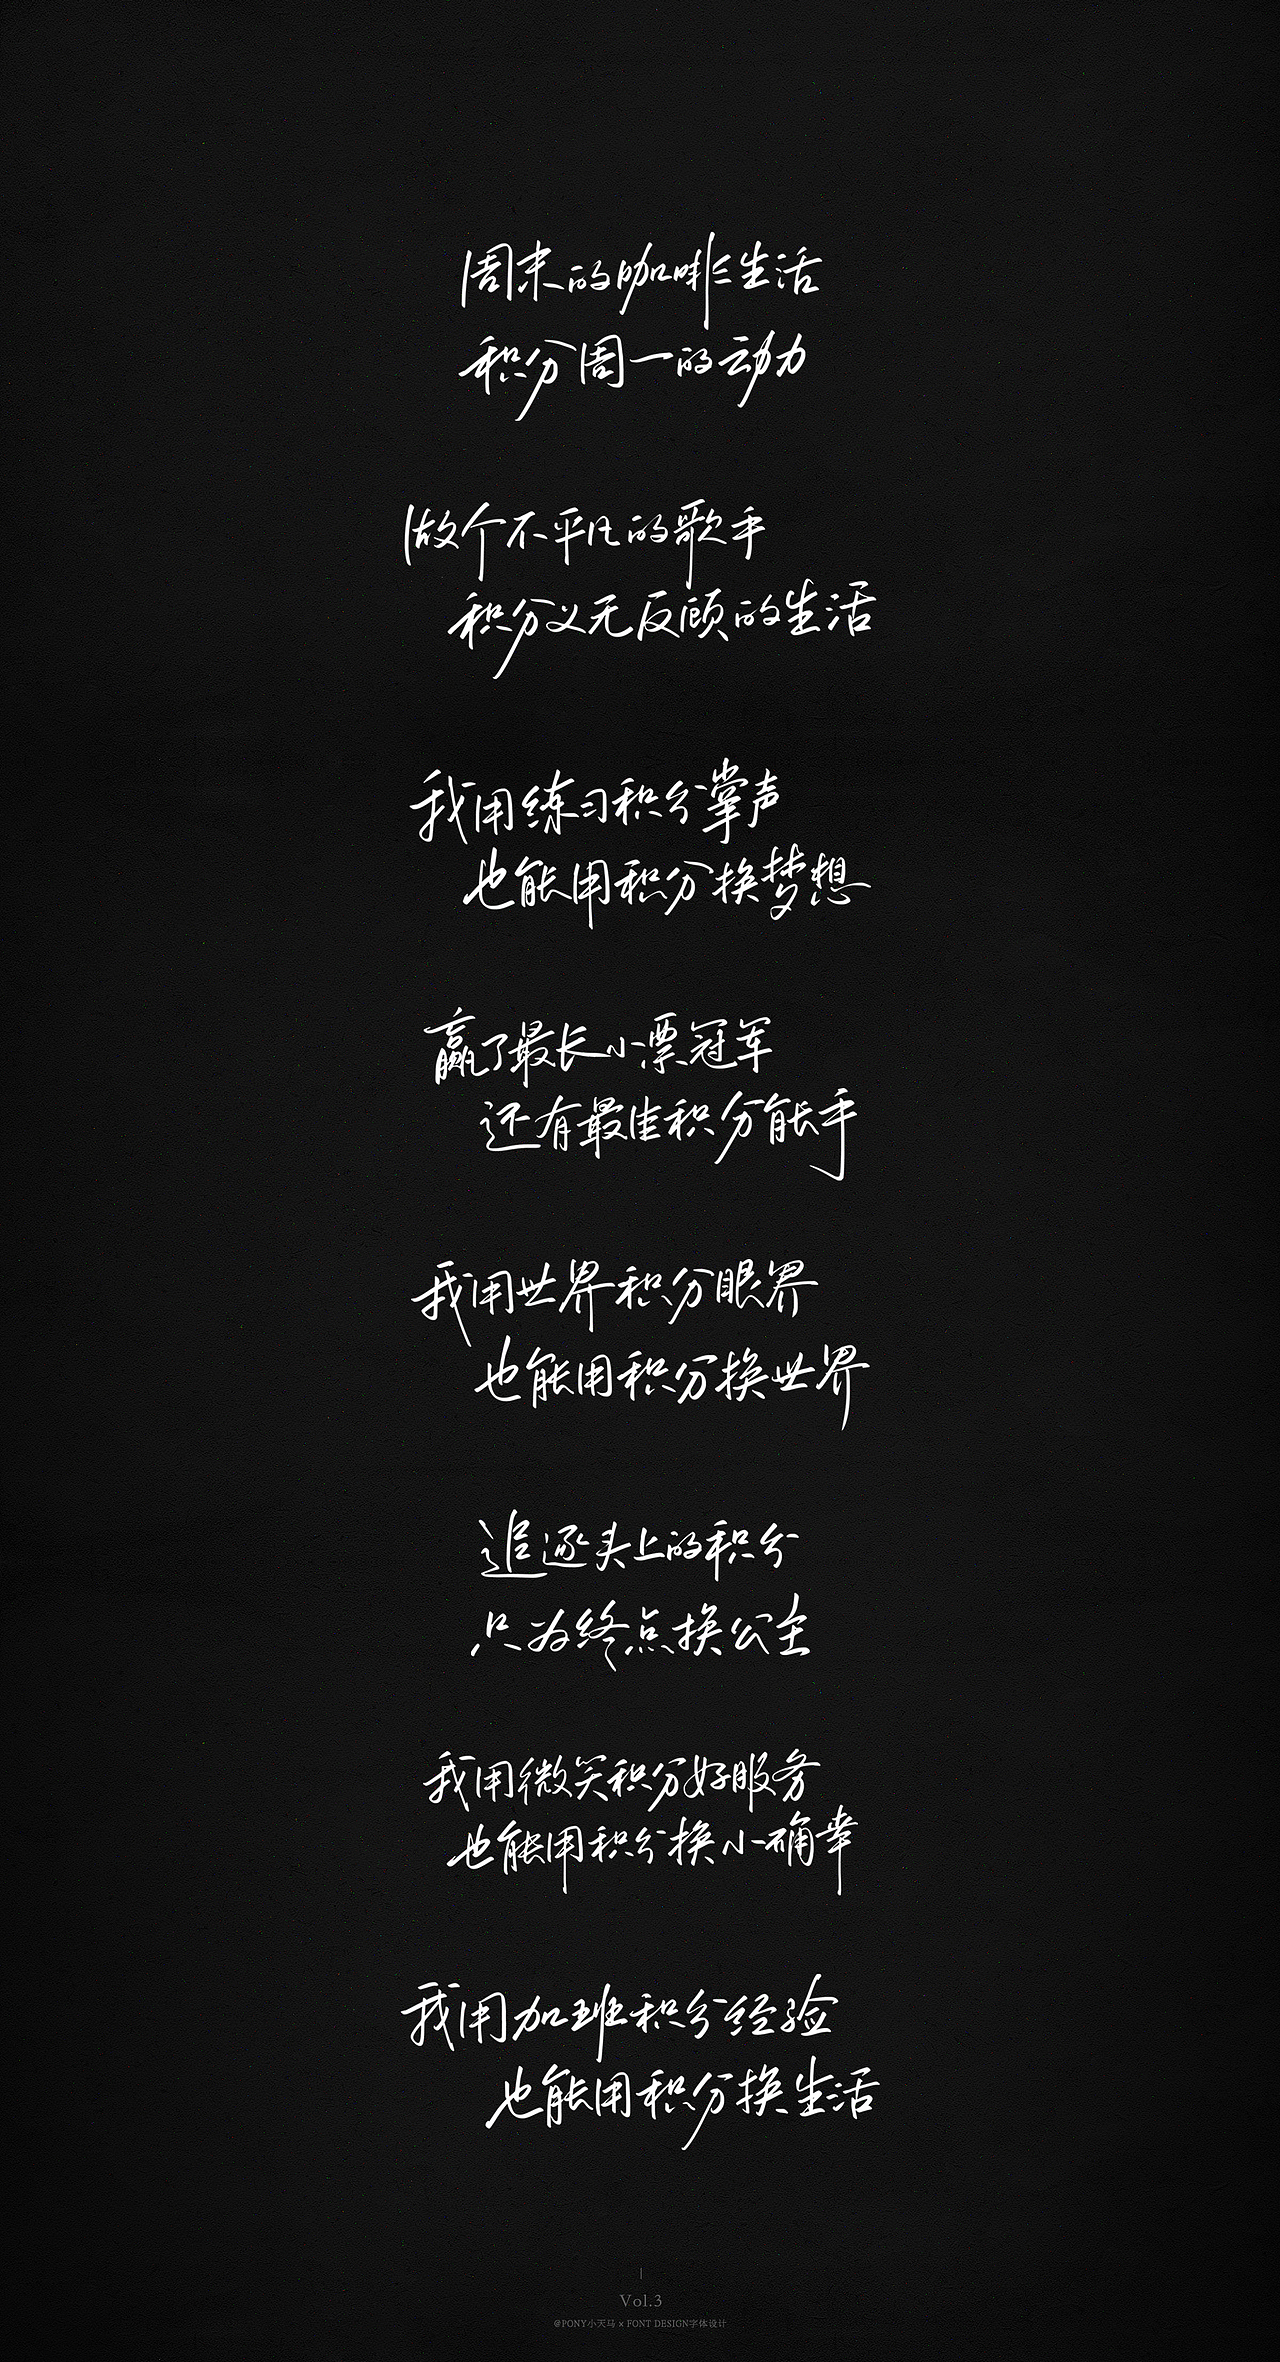 周末的咖啡生活
积分周一的动力
做个不平凡的歌手
积分义无反顾的生活
我用练习积分掌声
也能用积分换梦想
赢了最长小票冠军
还有最佳积分能手
我用世界积分眼界
也能用积分换世界
追逐头上的积分
只为终点换公主
我用微笑积分好服务
也能用积分换小确幸
我用加班积分经验
也能用积分换生活
Vol.3
@PONY小天马 × FONT DESIGN字体设计